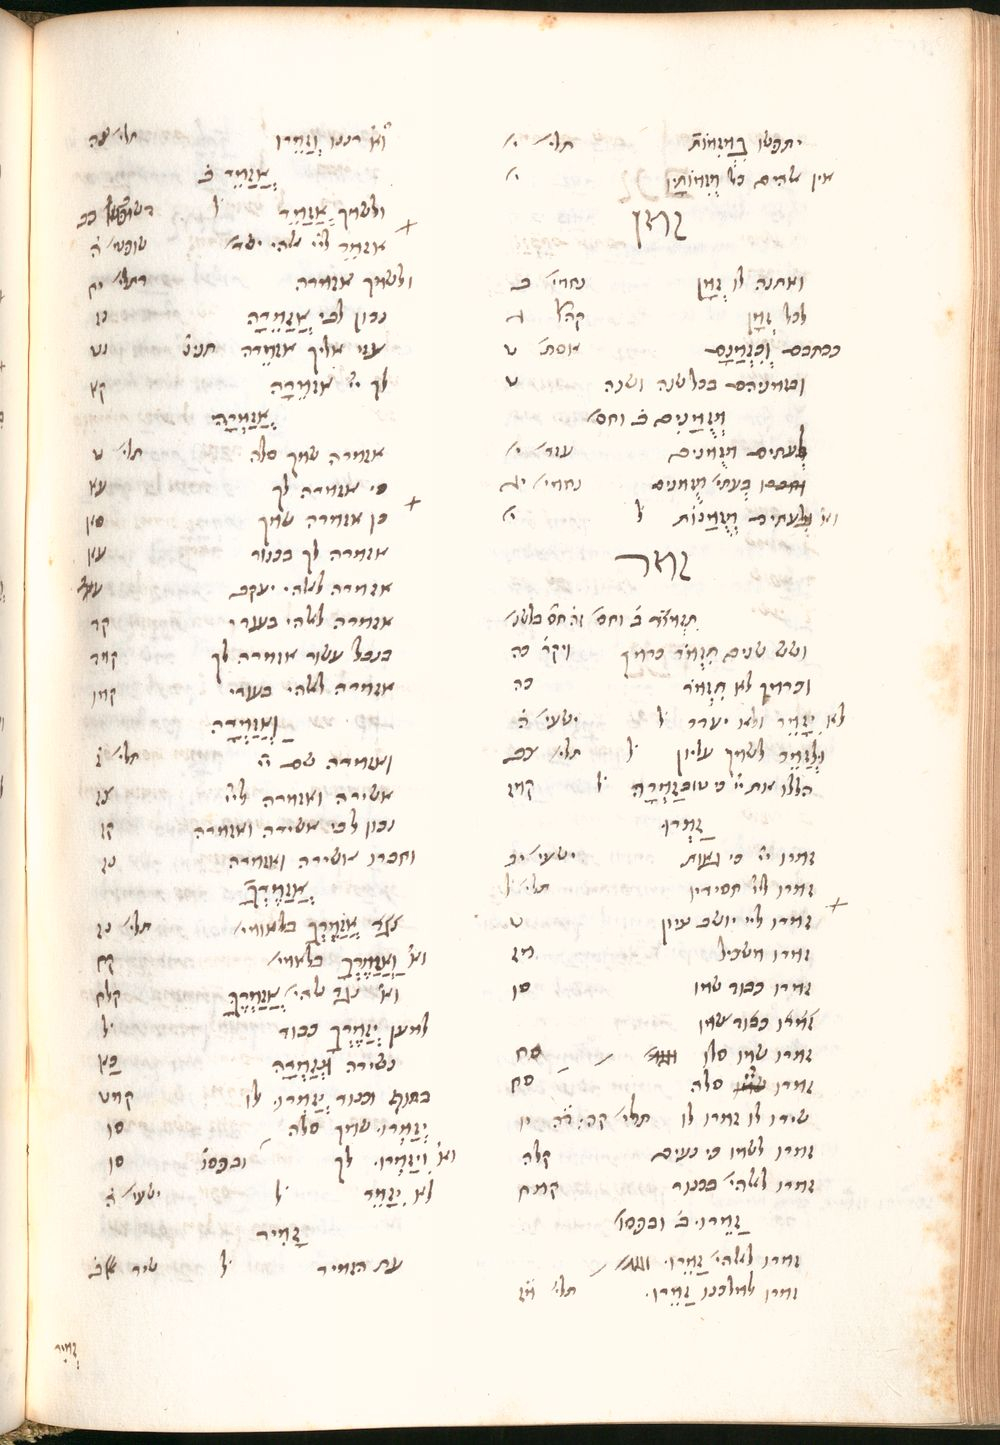 יתפשו בְמְזִמּוֹת תלי׳ י׳
אין אלהים כל מְזִמּוֹתָיו י׳
זמן
ואתנה לו זְמָן נחמי׳ ב
לכל זְמָן קהל׳ ג
ככתבם וְכִזְמַנָם אסת׳ ט
ובזמניהם בכל שנה ושנה ט
מְזֻמַנִים ב׳ וחס׳
לְעתים מזומנים עזר׳ י׳
בעתי׳ מזמנים נחמי׳ יג
וא׳ לְעתים מְזֻמַנוֹת ל׳ י׳
זמר
תִזְמוֹר ב׳ וחס׳
ושש שנים תִזְמוֹר כרמך ויקר׳ כה
וכרמך לא תִזְמוֹר כה
לא יִזָמֵר ולא יעדר ל׳ ישעי׳ ה׳
וּלְזַמֵר לשמך עליון ל׳ תלי׳ צב
הללו את יי׳ כי טוב זַמְרָה ל׳ קמז
זַמְרוּ
זמרו יי׳ כי גאות ישעי׳ יב
זמרו ליי׳ חסידיו תלי׳ ל׳
זמרו ליי׳ יושב ציון ט
זמרו משכיל מז
זמרו כבוד שמו סו
זמרו כבוד שמו
זמרו שמו סלו סח
זמרו סלה סח
שירו לו זמרו לו תלי׳ קה׳
זמרו לשמו כי נעים קלה
זמרו לאלהי׳ בכנור קמח
זַמֵרוּ ב׳ ובהפס׳
זמרו לאלהי׳ זַמֵרוּ
זמרו למלכנו זַמֵרוּ תלי׳ מז
וא׳ רננו וְזַמֵרוּ תלי׳ צח
אֲזַמֵר ב׳
ולשמך אֲזַמֵר ל׳ כב
אזמר ליי׳ אלהי ישר׳ שופט׳ ה׳
ולשמך אזמרה תלי׳ יח
נכון לבי אֲזַמֵרָה נז
עזי אליך אזמֵרה נט
לך יי׳ אזמֵרָה קא
אֲזַמְרָה
אזמרה שמך תלי׳ ט
פי אזמרה לך עא
כן אזמרה שמך סא
אזמרה לך בכנור עא
אזמרה לאלהי יעקב עה
אזמרה לאלהי בעודי קד
בנבל עשור אזמרה לך קמד
אזמרה לאלהי בעודי קמו
וַאֲזַמְרָה
ואזמרה שם יי׳ תלי׳ ז׳
אשירה ואזמרה ליי׳ כז
נכון לבי אשירה ואזמרה קז
וחברו אשירה ואזמרה נז
אֲזַמֶרְךָ
אֲזַמֶרְךָ בלאומי׳ תלי׳ נז
וא׳ וַאֲזַמֶרְךָ בלאמי׳ קח
וא׳ נגד אלהי׳ אֲזַמְרֶךָּ קלח
למען יְזַמֶרְךָ כבוד ל׳
נשירה וּנְזַמְרָה כא
בתוף וכנור יְזַמְרוּ לו קמט
יְזַמְרוּ שמך סלה סו
וא׳ וִיזַמְרוּ לך ובהפס׳ סו
לא יִזָמֵר ל׳ ישעי׳ ה׳
זָמִיר
עת הזמיר ל׳ שיר ב׳
זְמִיר